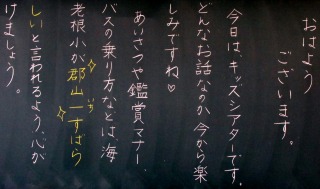 おはよう
ございます。
今日は、キッズシアターです。
どんなお話なのか、今から楽
しみですね♡
あいさつや鑑賞マナー、
バスの乗り方などは、海
老根小が郡山一すばら
いち
しいと言われるよう、心が
けましょう。